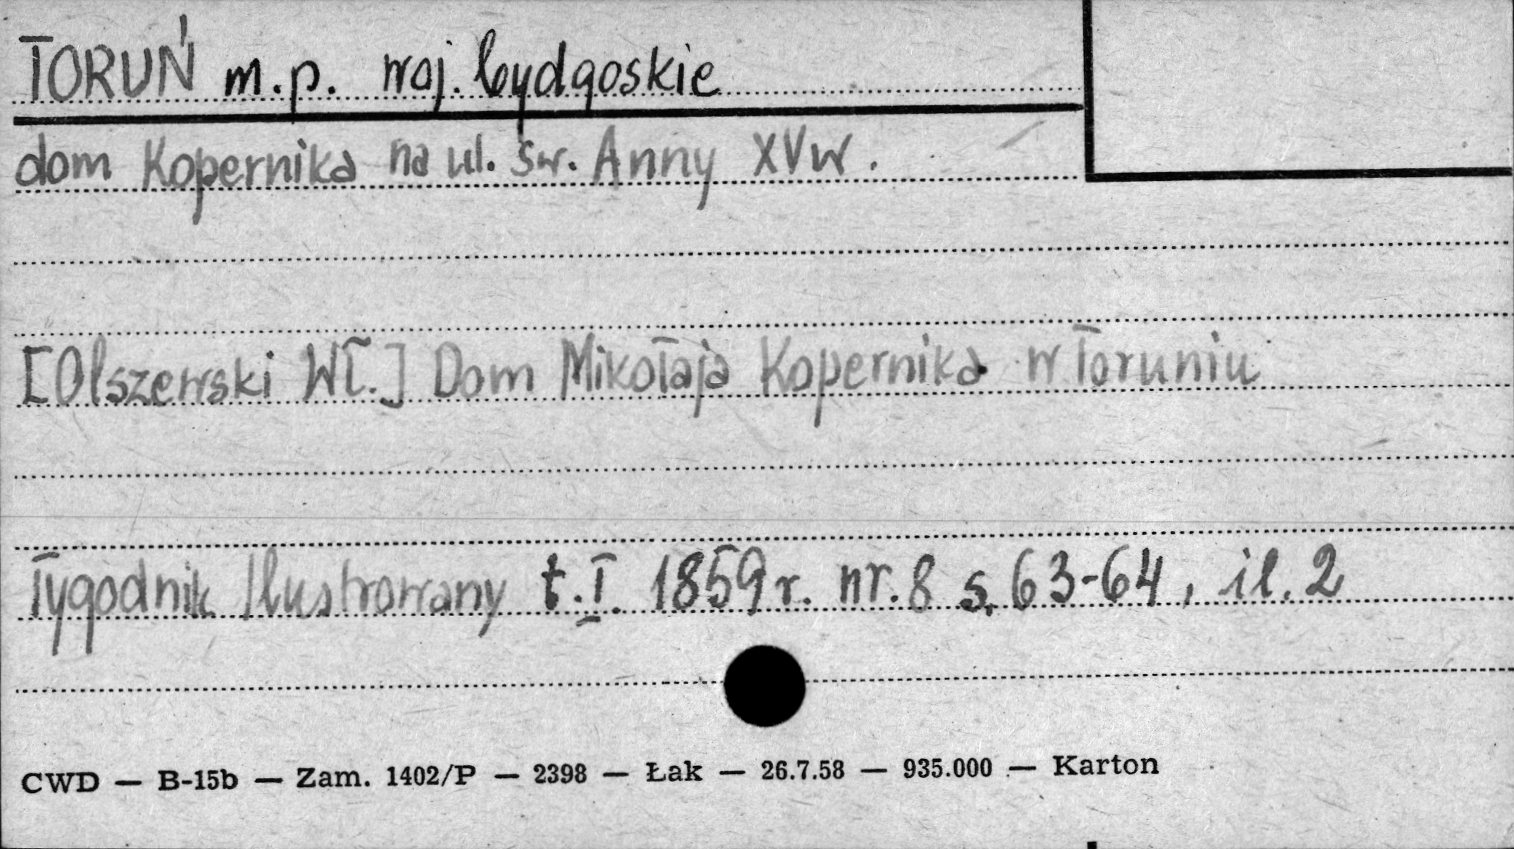 TORUŃ m.p. woj. bydgoskie
dom Kopernika na ul. św. Anny XVw.
[Olszewski Wł.] Dom Mikołaja Kopernika w Toruniu
Tygodnik Ilustrowany t.I. 1859r. nr.8 s.63-64, il.2
CWD — B-15b — Zam. 1402/P — 2398 — Łak — 26.7.58 — 935.000 — Karton